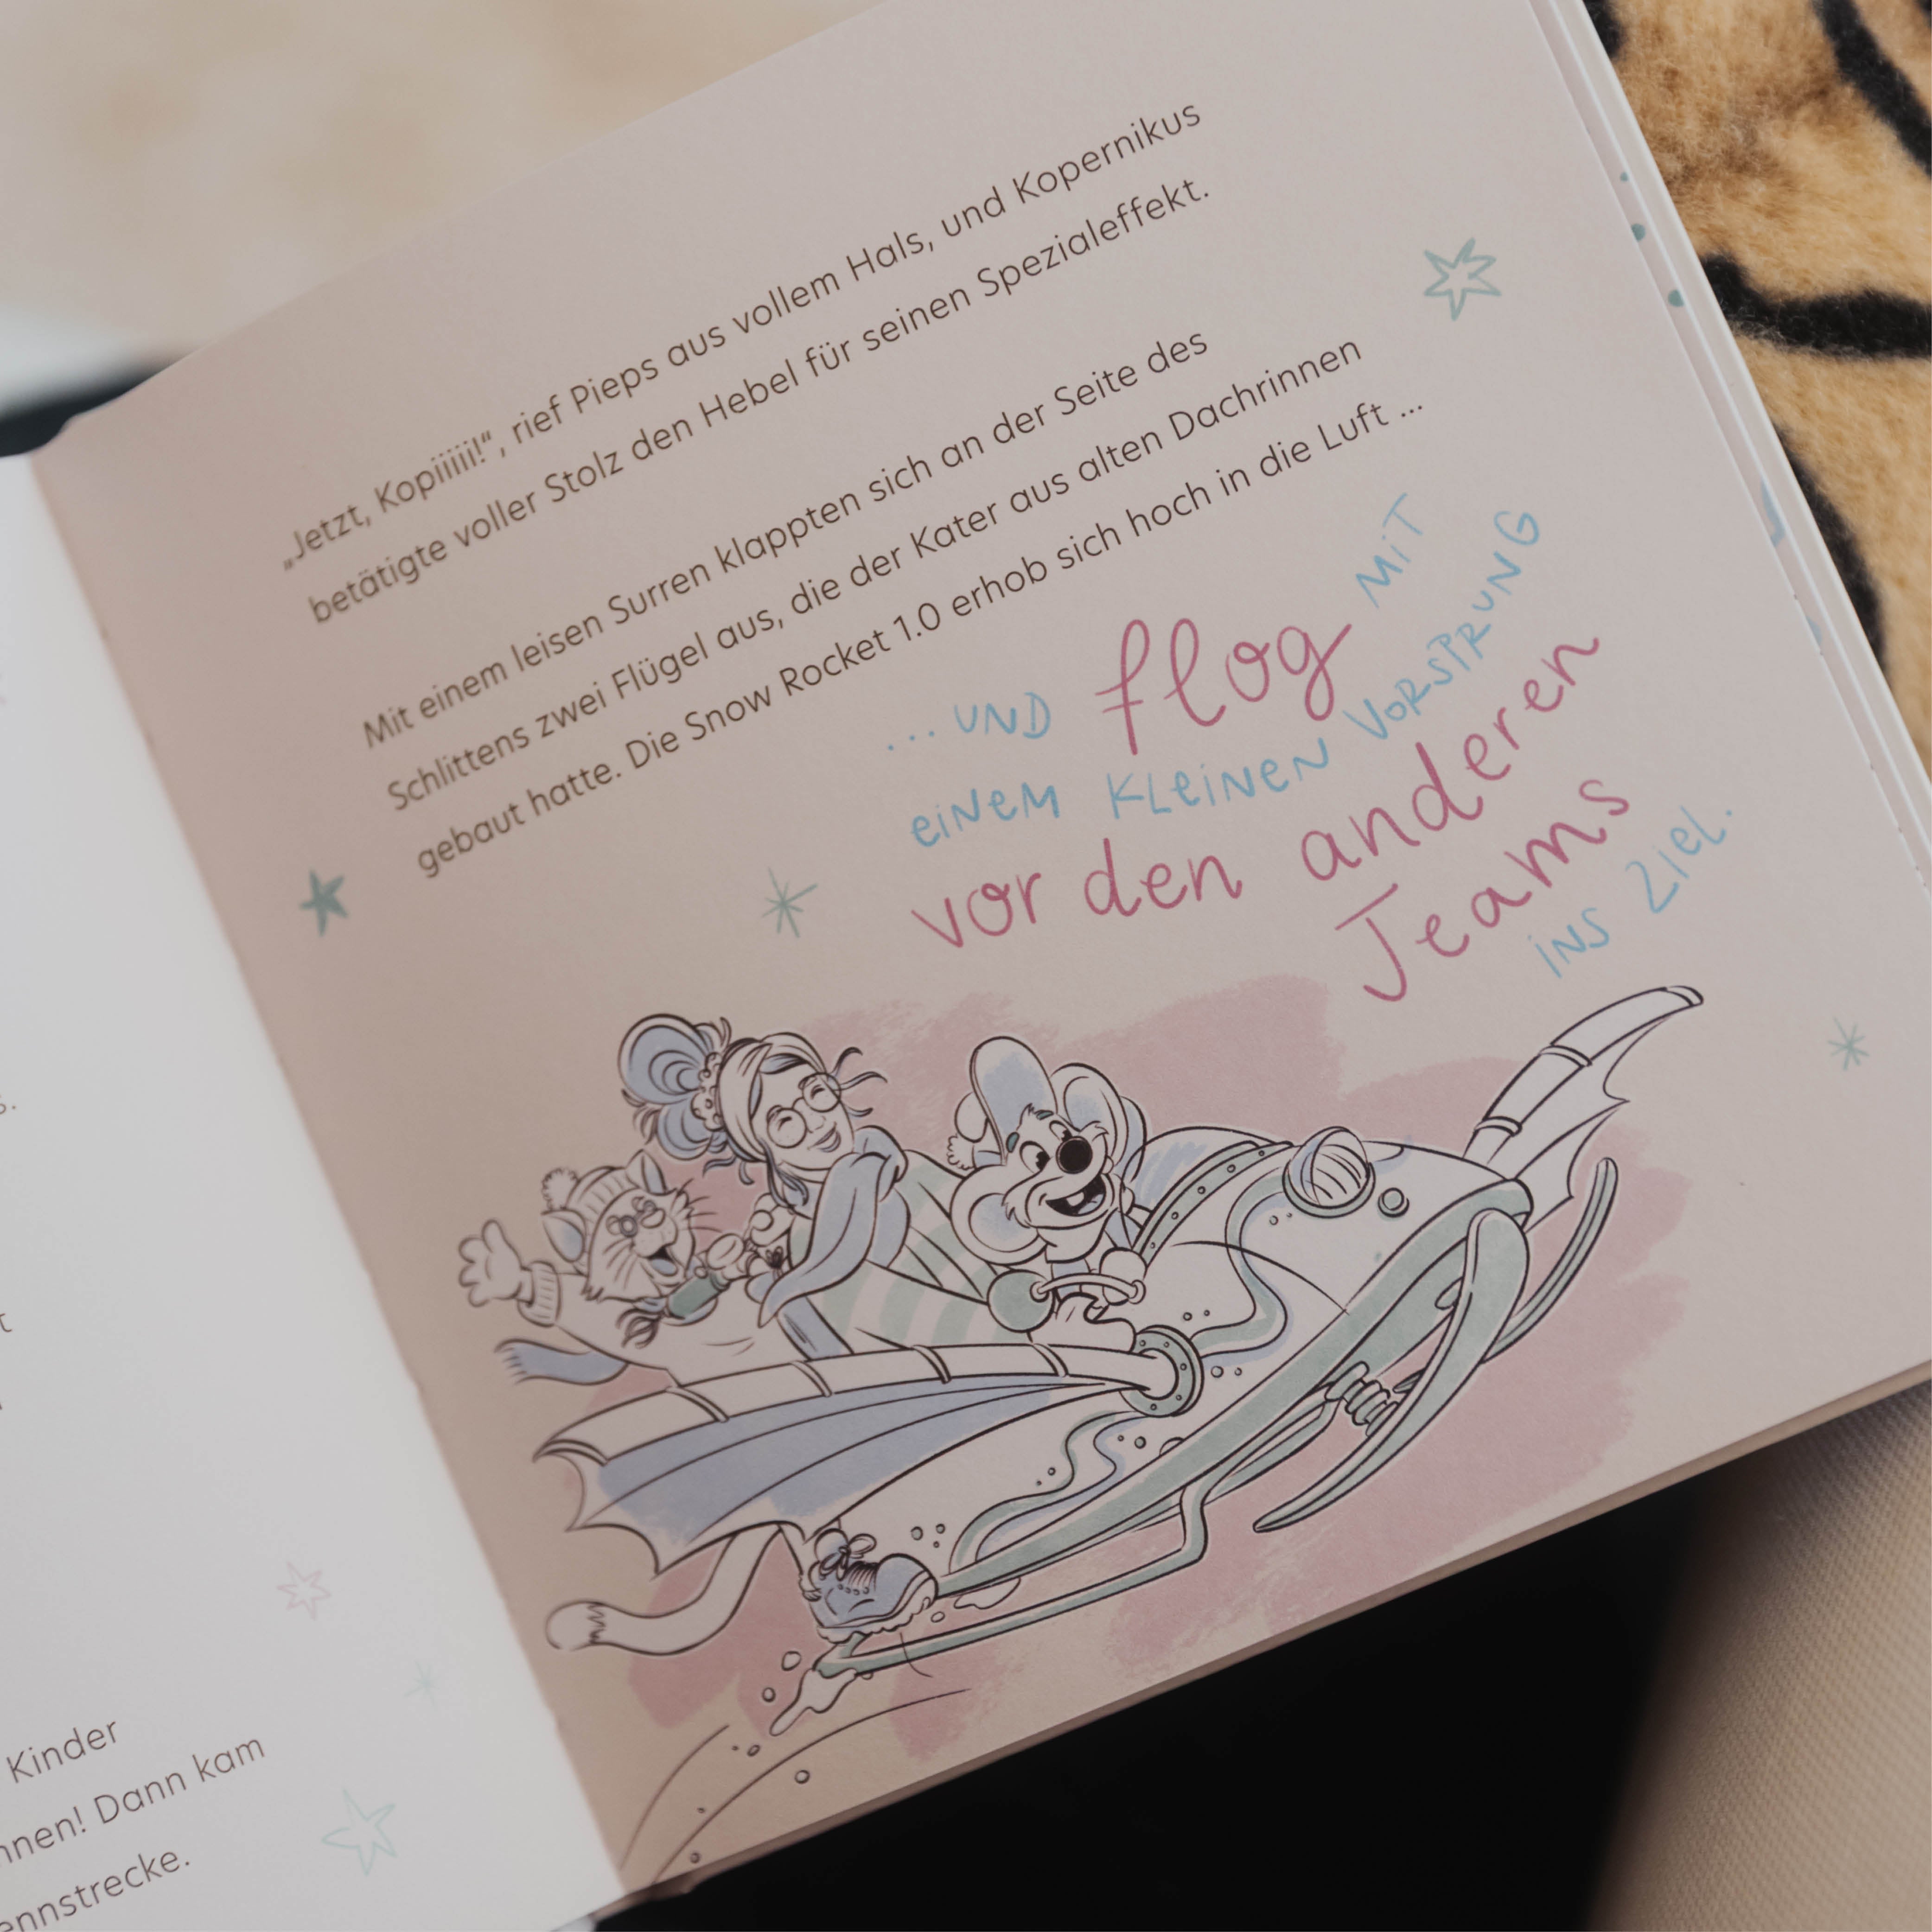 Kinder
Dann kam
„Jetzt, Kopiiiiii!“, rief Pieps aus vollem Hals, und Kopernikus
betätigte voller Stolz den Hebel für seinen Spezialeffekt.
Mit einem leisen Surren klappten sich an der Seite des
Schlittens zwei Flügel aus, die der Kater aus alten Dachrinnen
gebaut hatte. Die Snow Rocket 1.0 erhob sich hoch in die Luft ...
... UND flog MiT
eiNeM KLeiNeN VORSPRUNG
vor den anderen
Teams
iNS Ziel.